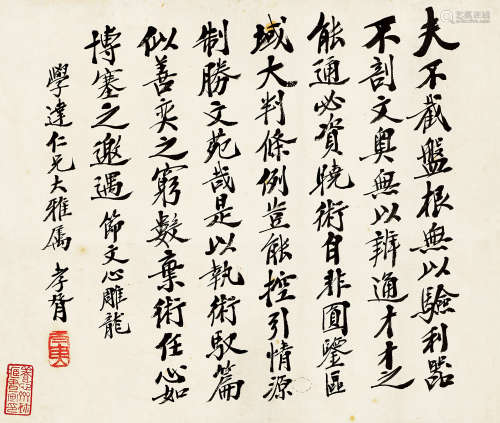 夫不截盤根無以驗利器
不剖文奧無以辨通才才之
能通必資曉術自非圓鑒區
域大判條例豈能控引情源
制勝文苑哉是以執術馭篇
似善奕之窮數棄術任心如
博塞之邀遇節文心雕龍
學逵仁兄大雅屬 孝胥